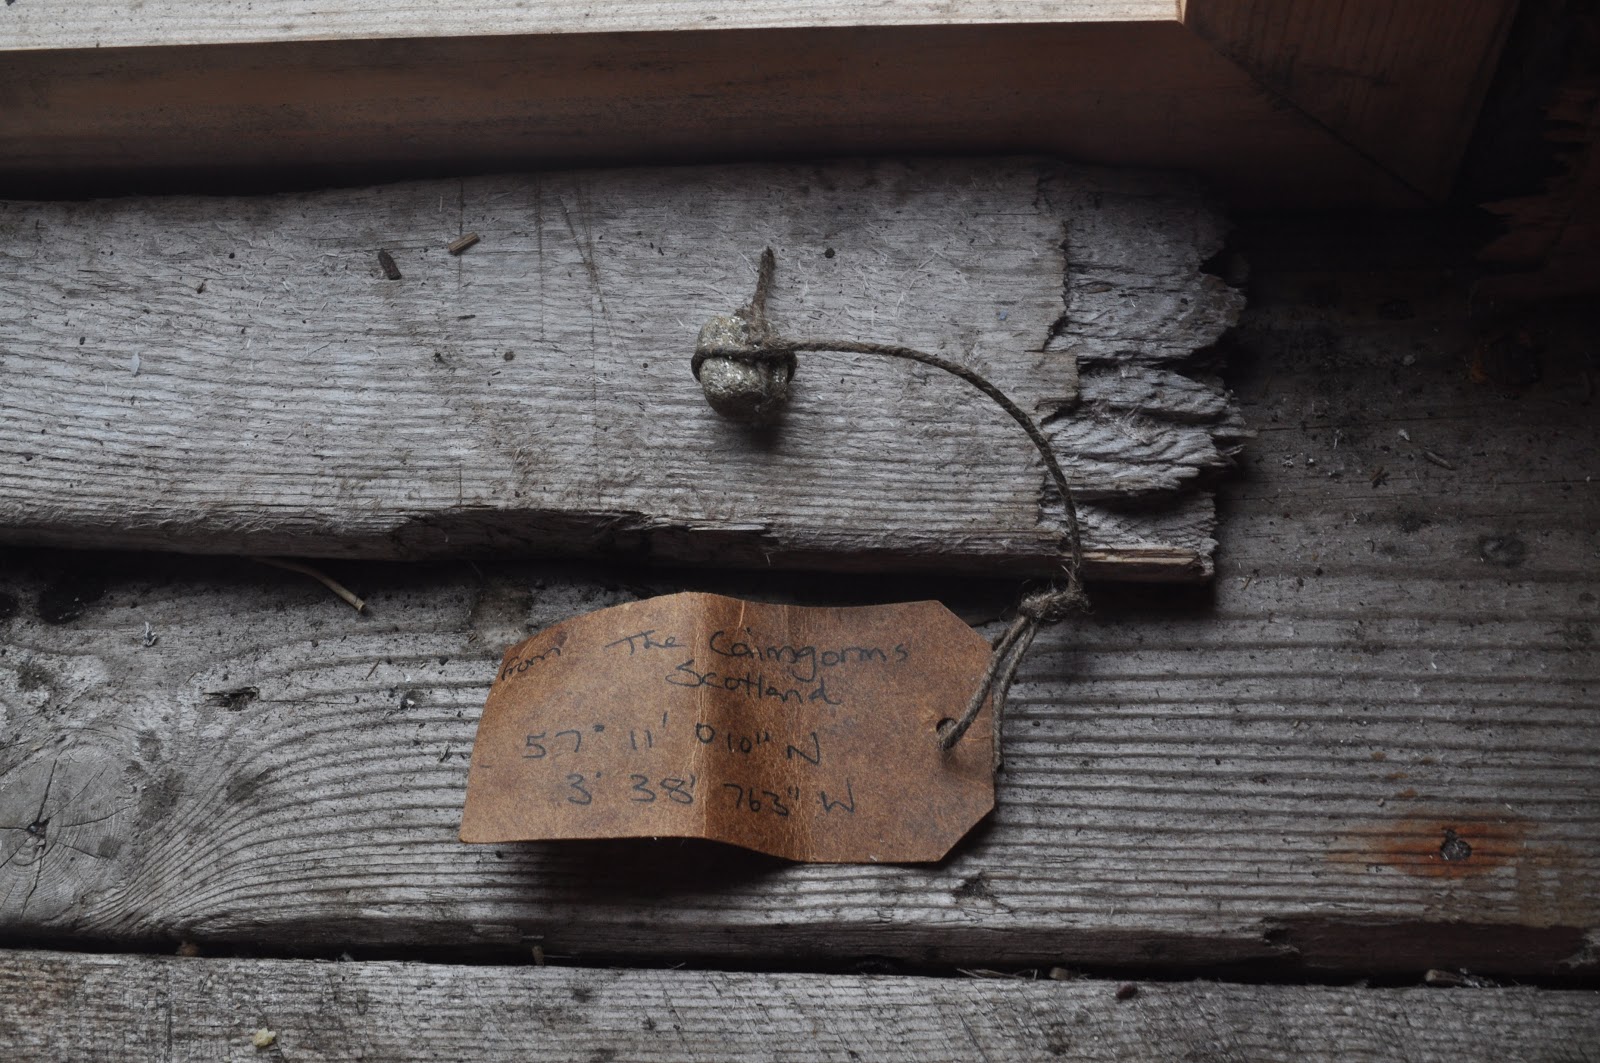 from The Cairngorms
Scotland
57° 11' 010" N
3° 38' 763" W